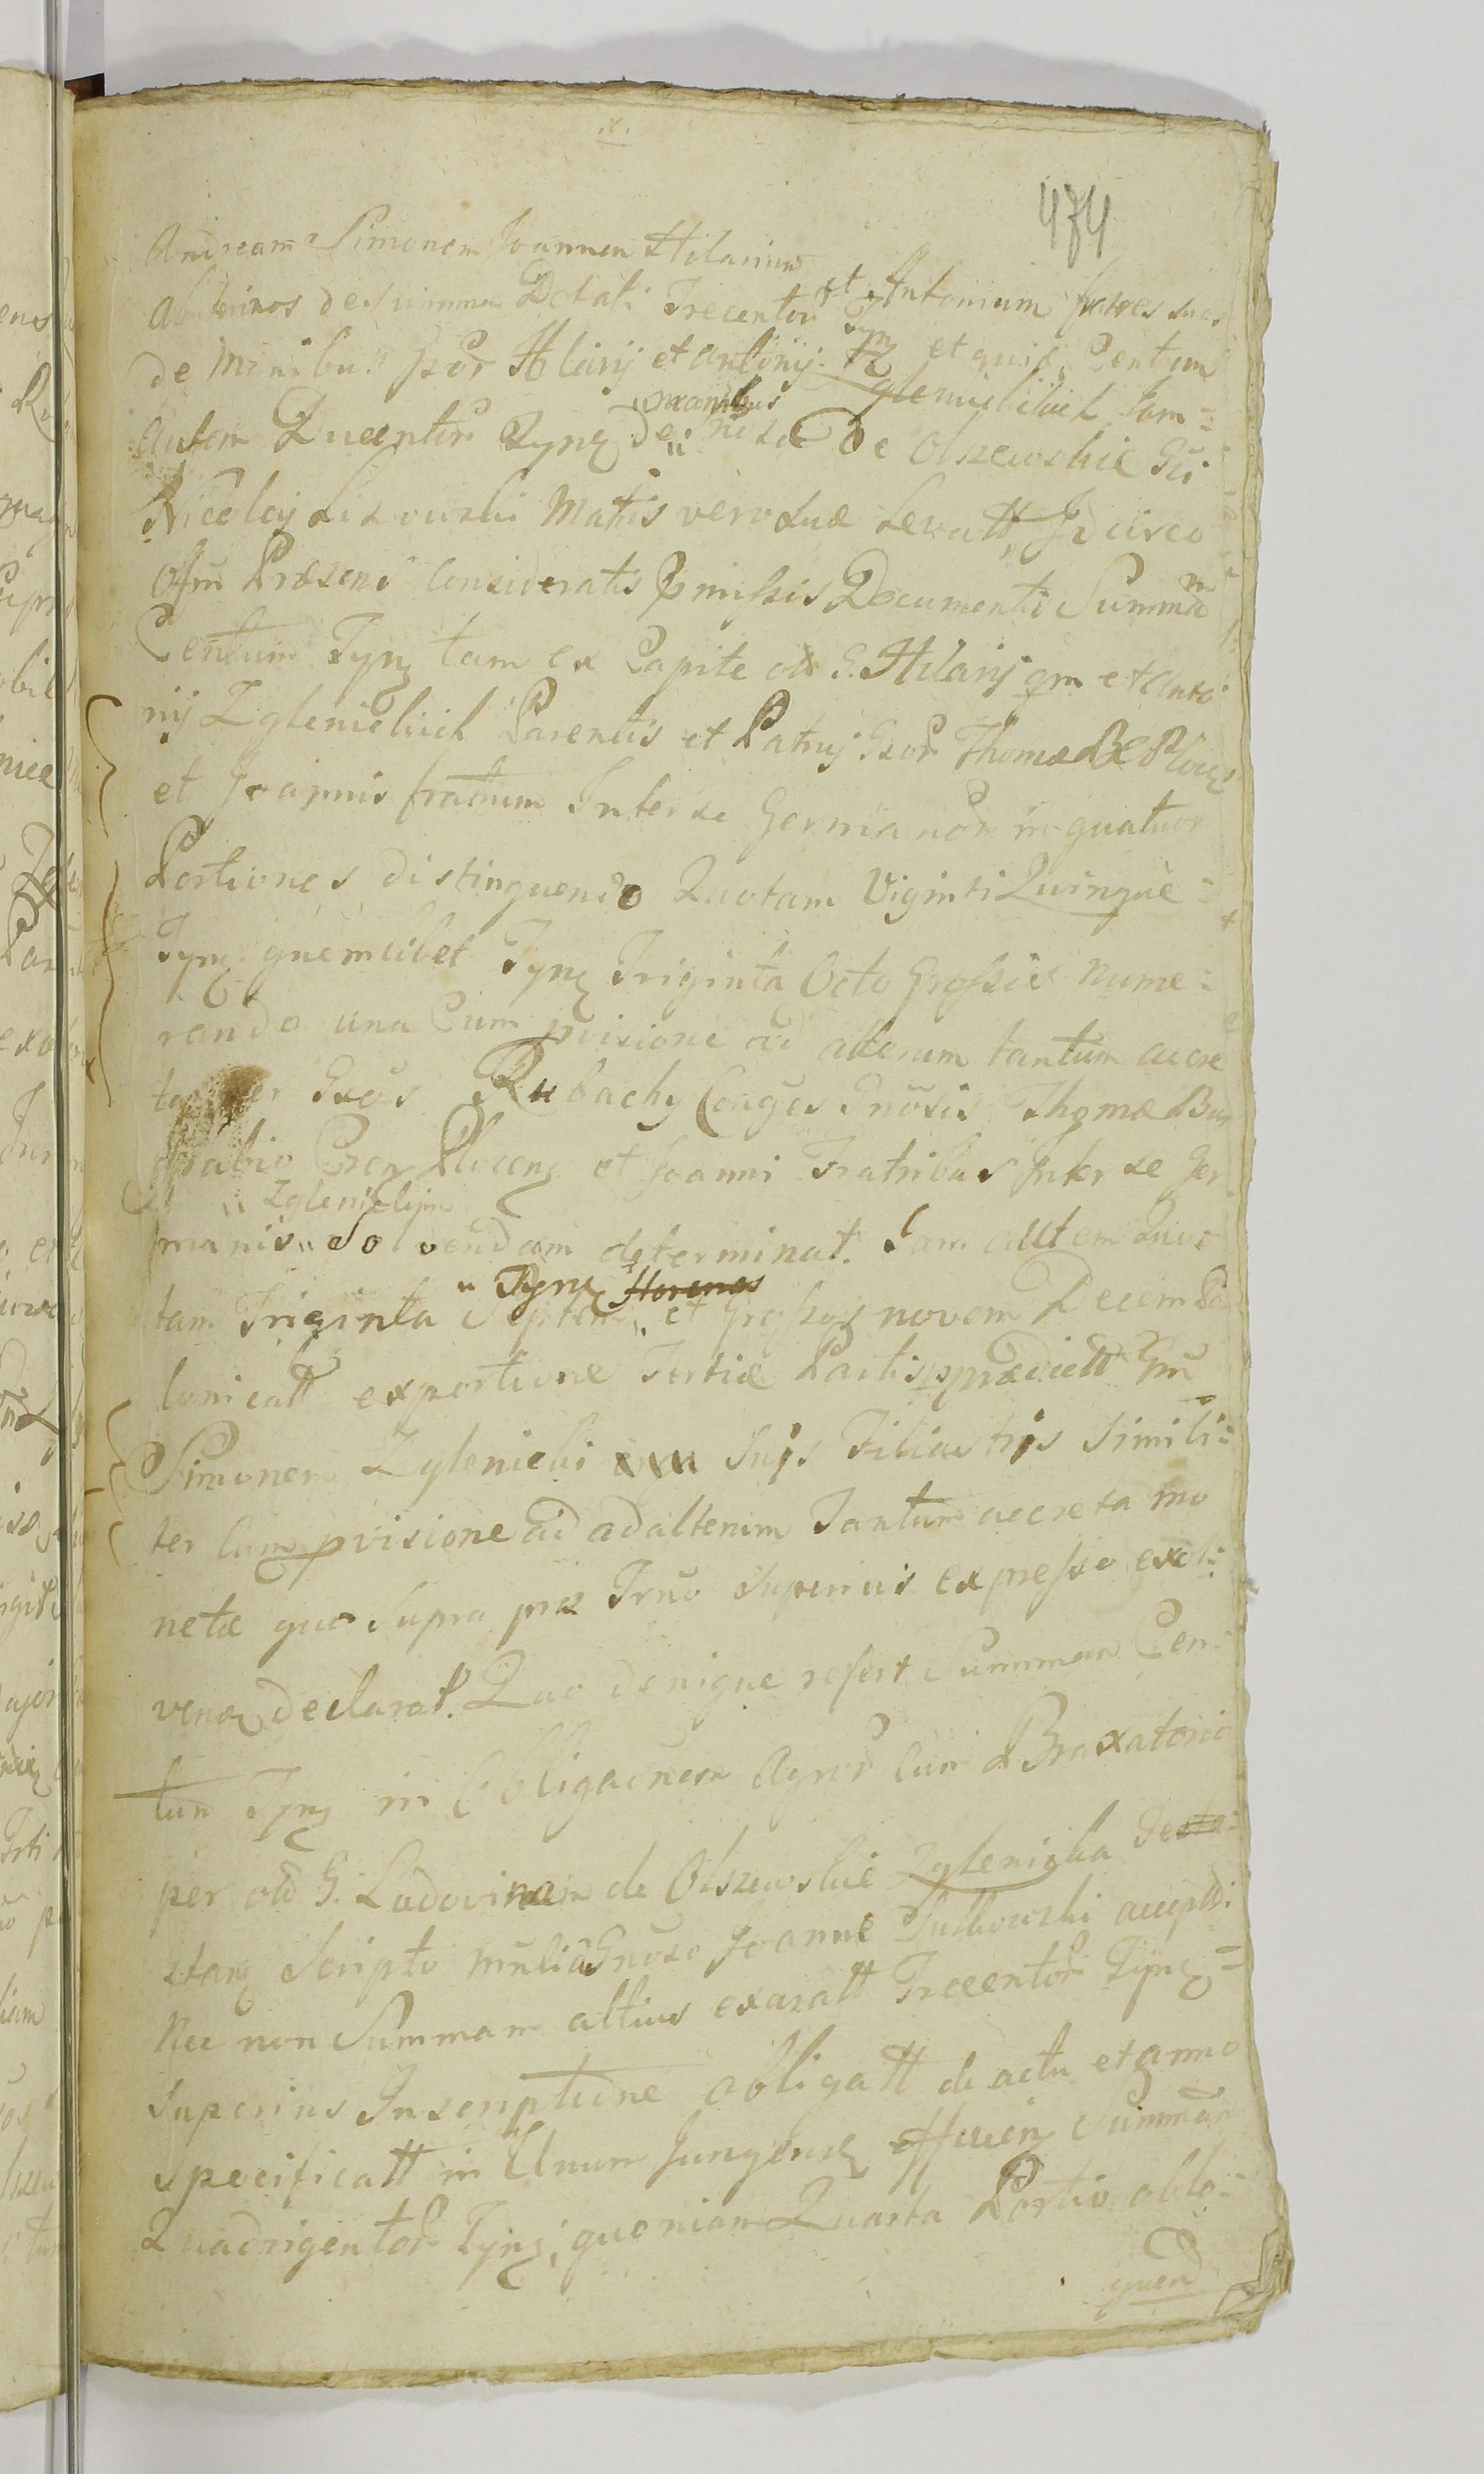 474
Andream Simonem Joannem Hilarium
et Antonium fratres suos
abuterinos de Summa Dotali Trecentor Tyn et quid. Centum
de manibus Gsor Hilarij et Antonij Zglenickich Jam=
autem Ducentor Tynę de manibus Gnosae De Olszewskie Gsi
Nicolaj Lisowski Matris vero suae Levatt, Idcirco
Offm Praesens Consideratis pmissis Documentis Summam
Centum Tynę tam ex Capite olr G. Hilarij qm et Anto
nij Zglenickich Parentis et Patruj Gsor Thomae
et Joannis fratrum Inter se Germanor in quatuor
Portiones distinguendo Quotam Viginti Quinque=
Tynę quemlibet Tynę Triginta Octo Grossis nume=
rando una Cum pvisione ad alterum tantum accre
ta per Gsos Rubachy Conges Gnosis Thomae Bur
grabio Cren Plocenę et Joanni Fratribus Inter se Ger
manis „ Zglenickijm „ Solvendam determinat. Jam autem Quo=
tam Triginta Septem „ Tynę „ et Grossos novem Decem Po
lonicatt exportione Tertiae Partis praedictt Gnm
Simonem Zglenicki Suis Filiastris Simili=
ter Cum pvisione ad ad alterum Tantum accreta mo
netae quo Supra prae Trno Superius expresso exol=
venę declarat. Quo denique refert Summam Cen=
tum Tynę in Obligaonem Agror Cum Braxatorio
per olr G. Ludovinam de Olszewskie Zglenicka Testa=
stanę Scripto Gnoso Joanne Sulkowski acceptt.
Nec non Summam altius exaratt Trecentor Tynę=
Superius Inscriptione obligatt de actu et anno
Specificatt in Unum Jungendę efficienę Summam
Quadrigentor Tynę, quoniam Quarta Portio olło=
quend